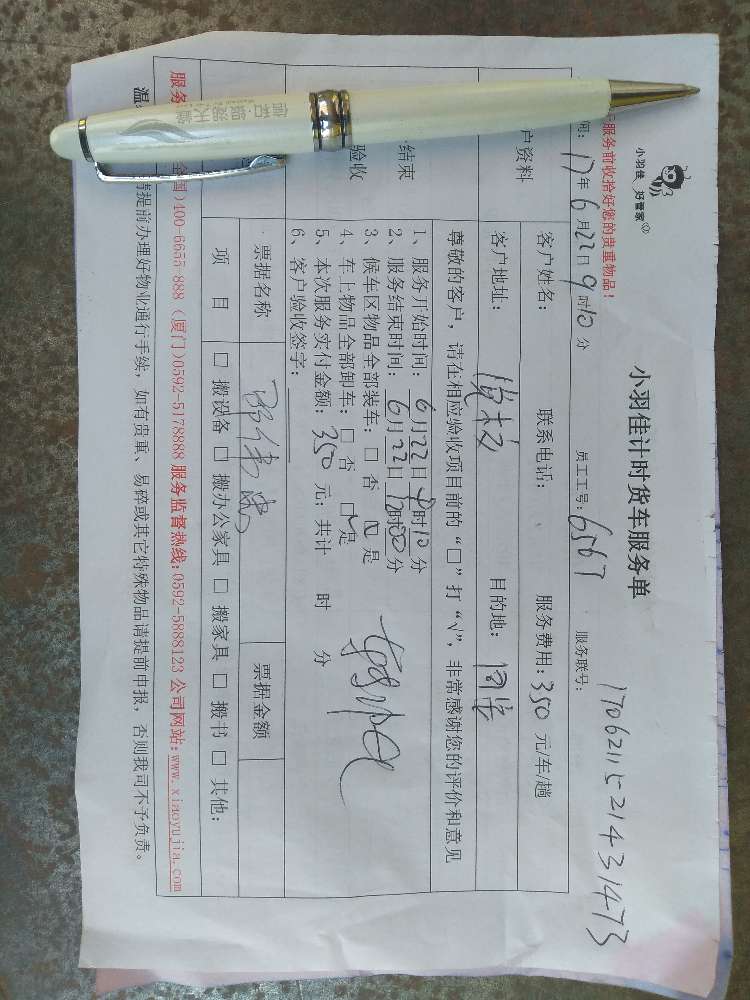 小羽佳 好管家
小羽佳计时货车服务单
服务前收拾好您的贵重物品!
间: 17年6月22日9时10分 员工工号: 6567 服务联号: 1706211521431473
户资料
客户姓名: 联系电话: 服务费用: 350 元/车/趟
客户地址: 目的地: 同安
尊敬的客户, 请在相应验收项目前的“□”打“√”, 非常感谢您的评价和意见
结束
验收
1、服务开始时间: 6月22日9时10分
2、服务结束时间: 6月22日12时00分
3、候车区物品全部装车: □ 否 ☑ 是
4、车上物品全部卸车: □ 否 ☑ 是
5、本次服务实付金额: 350 元; 共计 时 分
6、客户验收签字:
票据名称 票据金额
项 目 □ 搬设备 □ 搬办公家具 □ 搬家具 □ 搬书 □ 其他:
服务 全国)400-6655-888 (厦门)0592-5178888 服务监督热线:0592-5888123 公司网站:www.xiaoyujia.com
温 请提前办理好物业通行手续, 如有贵重、易碎或其它特殊物品请提前申报, 否则我司不予负责。
信和·银湖天峰